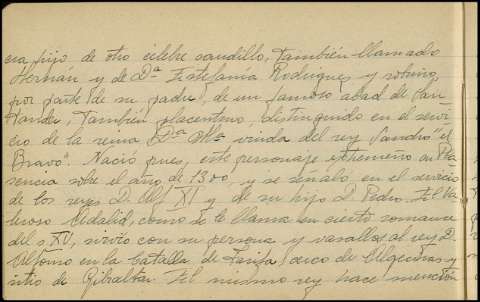 era hijo de otro célebre caudillo, también llamado
Hernán y de Dª Estefanía Rodríguez y sobrino,
por parte de su padre, de un famoso abad de San-
tander, también placentino, distinguido en el servi-
cio de la reina Dª Mª viuda del rey Sancho "el
Bravo". Nació pues, este personaje extremeño en Pla-
sencia sobre el año de 1300, y se señaló en el servicio
de los reyes D. Alf XI y de su hijo D. Pedro. El va-
leroso Cedalid, como se le llama en cierto romance
del s. XV, sirvió con su persona y vasallos al rey D.
en la batalla de Tarifa, cerco de Algeciras y
sitio de Gibraltar. El mismo rey hace mención